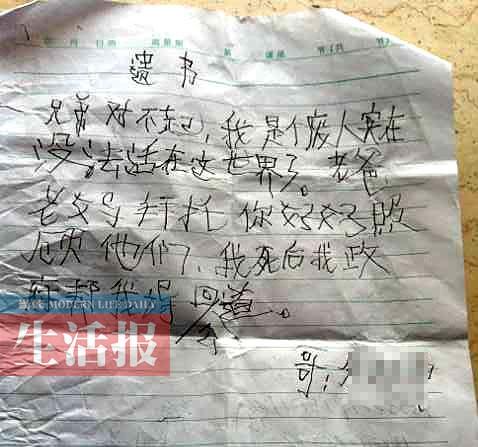 遗书
兄弟对不起，我是个废人实在
没法活在这世界了。老爸
老妈拜托你好好照
顾他们了，我死后找政
府帮我得回公道。
哥：
MODERN LIFE DAILY
生活报